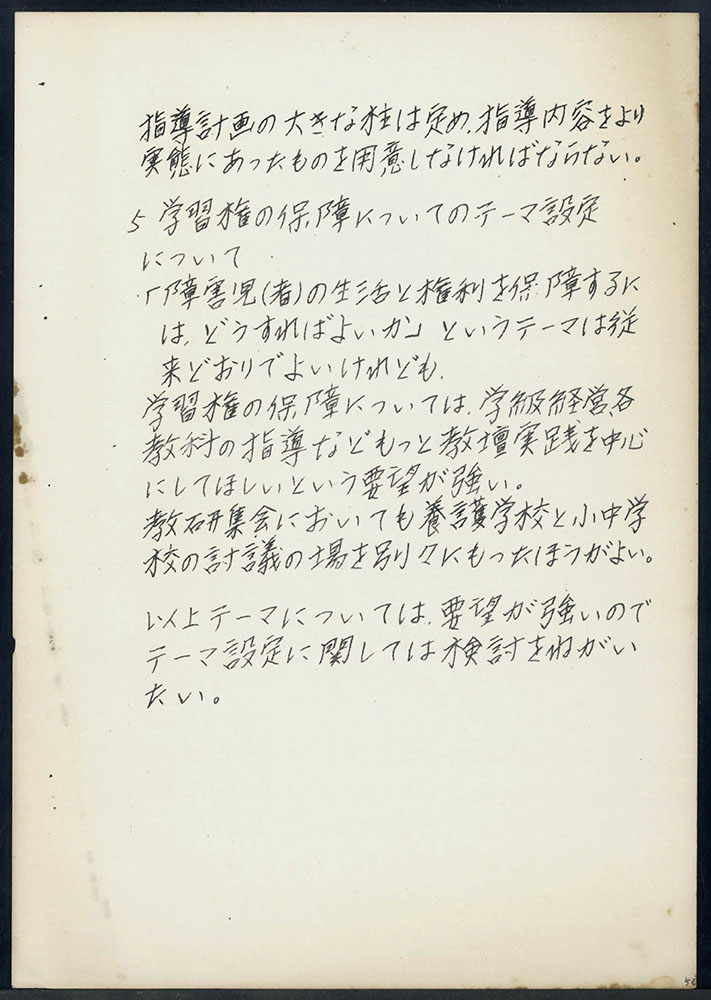 指導計画の大きな柱は定め、指導内容をより
実態にあったものを用意しなければならない。
5 学習権の保障についてのテーマ設定
について
「障害児(者)の生活と権利を保障するに
は、どうすればよいか」というテーマは従
来どおりでよいけれども、
学習権の保障については、学級経営、各
教科の指導などもっと教壇実践を中心
にしてほしいという要望が強い。
教研集会においても養護学校と小中学
校の討議の場を別々にもったほうがよい。
以上テーマについては、要望が強いので
テーマ設定に関しては検討をねがい
たい。